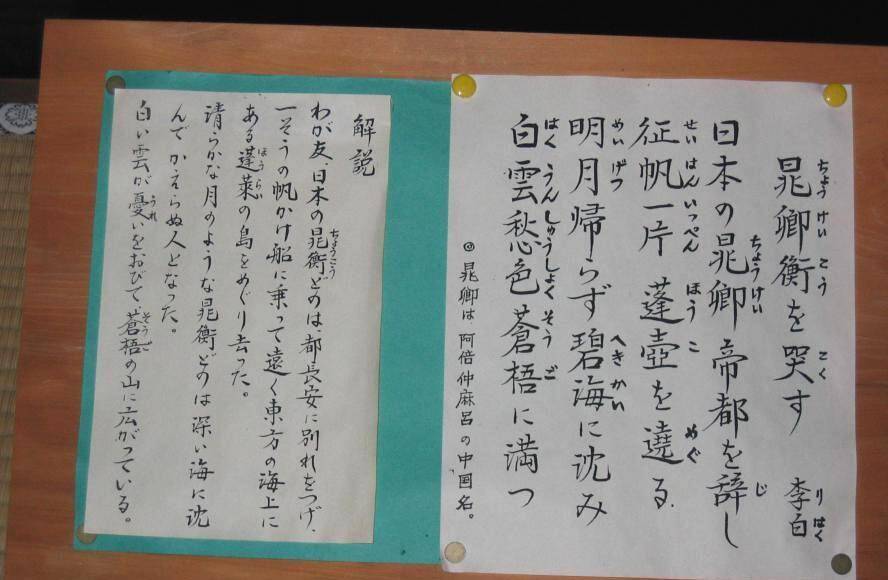 晁卿衡を哭す 李白
日本の晁卿帝都を辞し
征帆一片 蓬壺を遶る
明月帰らず碧海に沈み
白雲愁色蒼梧に満つ
◎晁卿は、阿倍仲麻呂の中国名。
解説
わが友、日本の晁衡どのは、都長安に別れをつげ、
一そうの帆かけ船に乗って遠く東方の海上に
ある蓬莱の島をめぐり去った。
清らかな月のような晁衡どのは深い海に沈
んでかえらぬ人となった。
白い雲が憂いをおびて、蒼梧の山に広がっている。